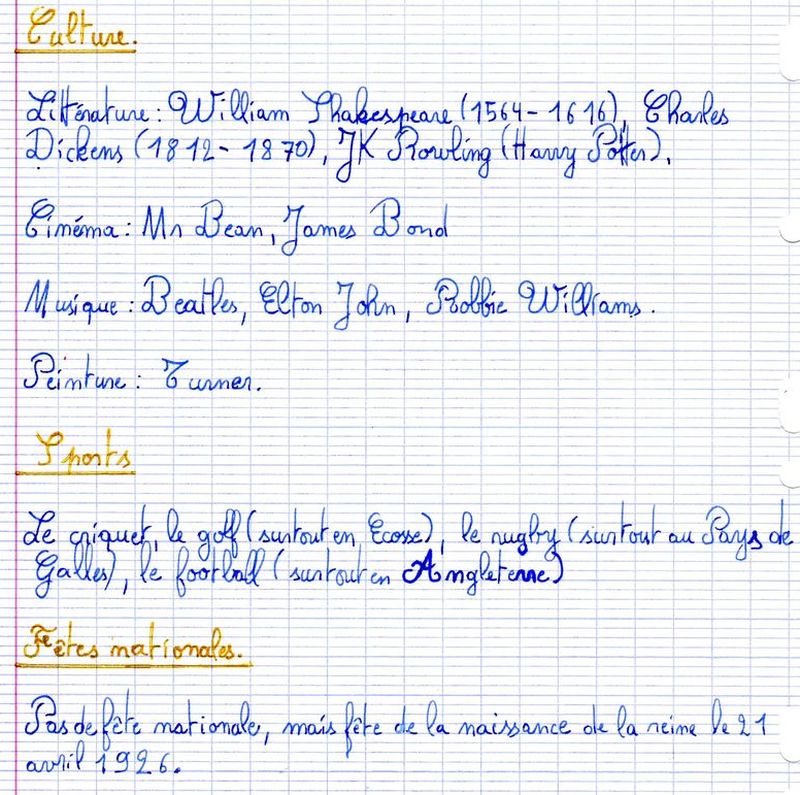 Culture.
Littérature : William Shakespeare (1564 - 1616), Charles
Dickens (1812 - 1870), JK Rowling (Harry Potter).
Cinéma : Mr Bean, James Bond
Musique : Beatles, Elton John, Robbie Williams.
Peinture : Turner.
Sports
Le criquet, le golf (surtout en Ecosse), le rugby (surtout au Pays de
Galles), le football (surtout en Angleterre)
Fêtes nationales.
Pas de fête nationale, mais fête de la naissance de la reine le 21
avril 1926.